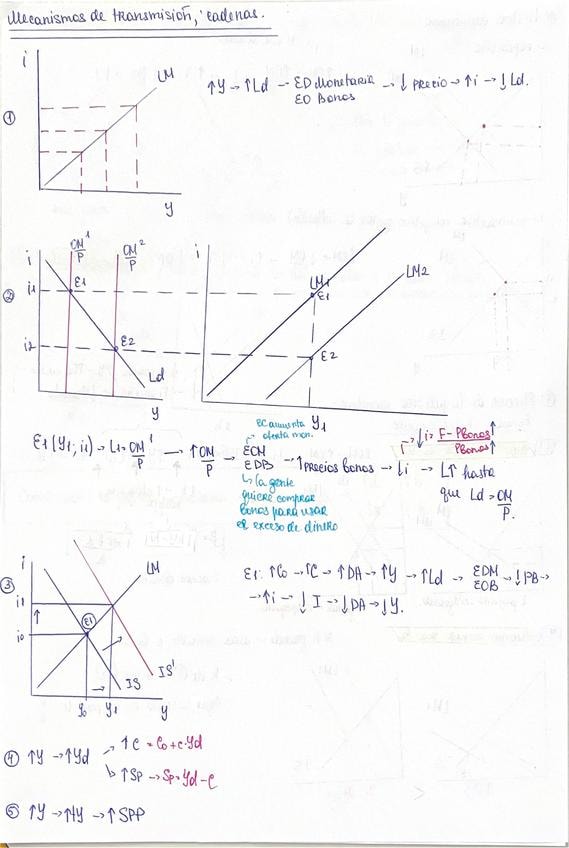 Mecanismos de transmisión, cadenas.
i
LM
y
①
↑Y → ↑Ld → ED Monetaria → ↓ precio → ↑i → ↓ Ld.
EO Bonos
②
i
OM¹/P
OM²/P
i1
E1
i2
E2
Ld
y
i
LM1
E1
LM2
E2
Y1
E1 (Y1; i1) → L1 = OM¹/P → ↑OM/P → EOM → ↑precios bonos → ↓i → L↑ hasta
EDPB
que Ld = OM/P.
BC aumenta
oferta mon.
↳ la gente
quiere comprar
bonos para usar
el exceso de dinero
↓i = F - Pbonos↑ / Pbonos↑
③
i
LM
i1
i0
E1
IS'
IS
Y0
Y1
y
E1: ↑C0 → ↑C → ↑DA → ↑Y → ↑Ld → EDM → ↓PB →
EOB
→ ↑i → ↓ I → ↓DA → ↓Y.
④ ↑Y → ↑Yd
↑C = C0 + c·Yd
↑Sp → Sp = Yd - C
⑤ ↑Y → ↑tY → ↑SPP